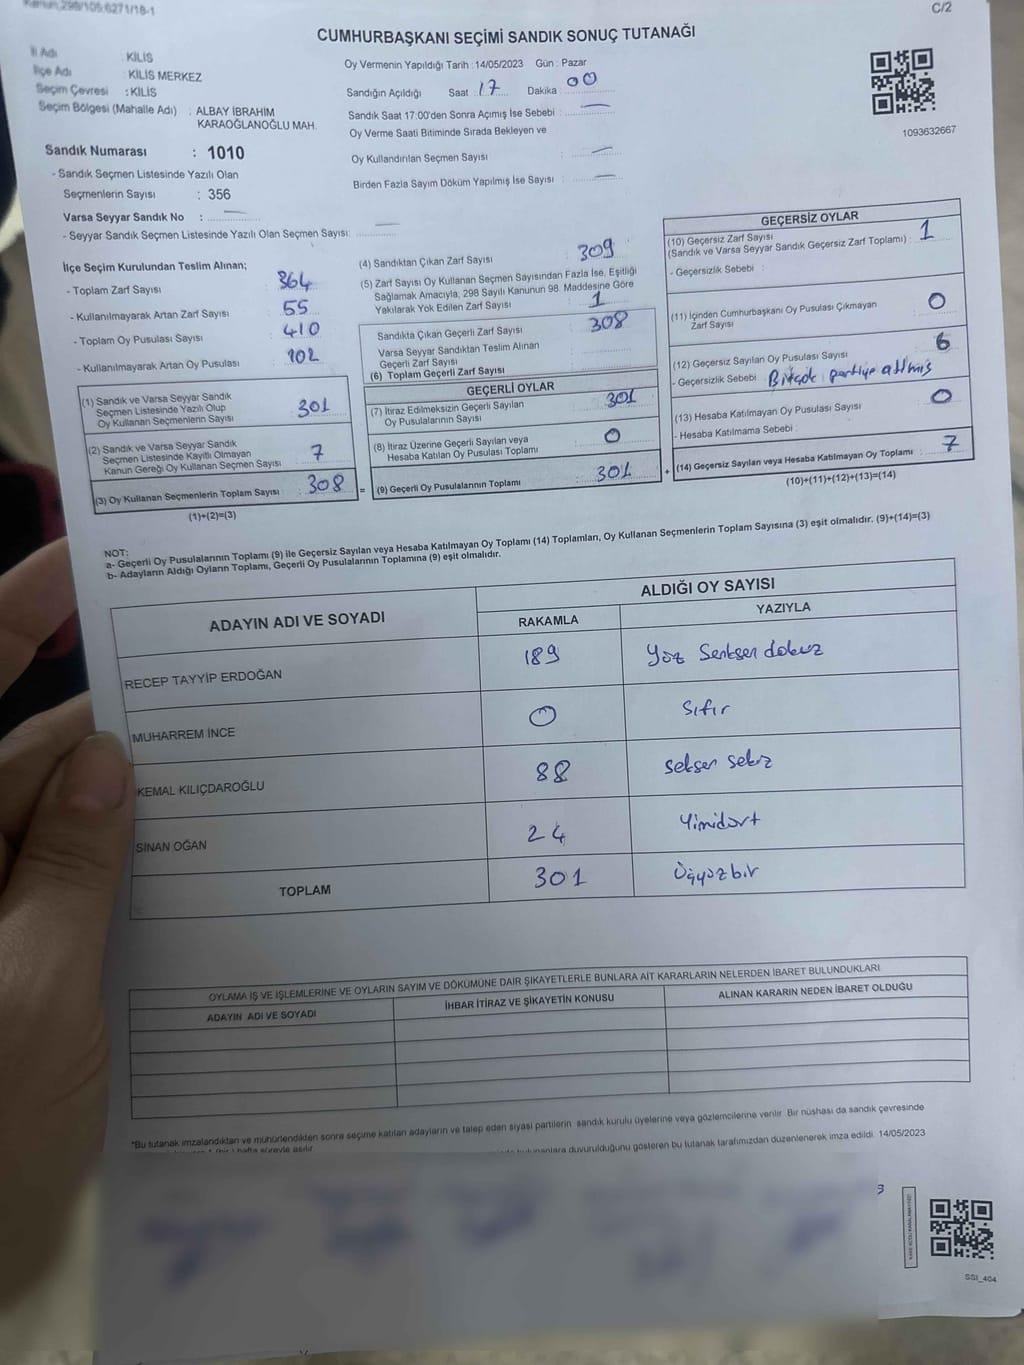 Kanun;298/105;6271/18-1
C/2
CUMHURBAŞKANI SEÇİMİ SANDIK SONUÇ TUTANAĞI
İl Adı : KİLİS
İlçe Adı : KİLİS MERKEZ
Seçim Çevresi : KİLİS
Seçim Bölgesi (Mahalle Adı) : ALBAY İBRAHİM
KARAOĞLANOĞLU MAH.
Sandık Numarası : 1010
- Sandık Seçmen Listesinde Yazılı Olan
Seçmenlerin Sayısı : 356
Varsa Seyyar Sandık No :
- Seyyar Sandık Seçmen Listesinde Yazılı Olan Seçmen Sayısı:
Oy Vermenin Yapıldığı Tarih : 14/05/2023 Gün : Pazar
Sandığın Açıldığı Saat : 17 Dakika : 00
Sandık Saat 17:00'den Sonra Açımış İse Sebebi :
Oy Verme Saati Bitiminde Sırada Bekleyen ve
Oy Kullandırılan Seçmen Sayısı :
Birden Fazla Sayım Döküm Yapılmış İse Sayısı :
1093632667
İlçe Seçim Kurulundan Teslim Alınan;
- Toplam Zarf Sayısı : 364
- Kullanılmayarak Artan Zarf Sayısı : 55
- Toplam Oy Pusulası Sayısı : 410
- Kullanılmayarak Artan Oy Pusulası : 102
(1) Sandık ve Varsa Seyyar Sandık
Seçmen Listesinde Yazılı Olup
Oy Kullanan Seçmenlerin Sayısı : 301
(2) Sandık ve Varsa Seyyar Sandık
Seçmen Listesinde Kayıtlı Olmayan
Kanun Gereği Oy Kullanan Seçmen Sayısı : 7
(3) Oy Kullanan Seçmenlerin Toplam Sayısı : 308
(1)+(2)=(3)
(4) Sandıktan Çıkan Zarf Sayısı : 309
(5) Zarf Sayısı Oy Kullanan Seçmen Sayısından Fazla İse, Eşitliği
Sağlamak Amacıyla, 298 Sayılı Kanunun 98. Maddesine Göre
Yakılarak Yok Edilen Zarf Sayısı : 1
Sandıkta Çıkan Geçerli Zarf Sayısı : 308
Varsa Seyyar Sandıktan Teslim Alınan
Geçerli Zarf Sayısı :
(6) Toplam Geçerli Zarf Sayısı :
GEÇERLİ OYLAR
(7) İtiraz Edilmeksizin Geçerli Sayılan
Oy Pusulalarının Sayısı : 301
(8) İtiraz Üzerine Geçerli Sayılan veya
Hesaba Katılan Oy Pusulası Toplamı : 0
= (9) Geçerli Oy Pusulalarının Toplamı : 301
GEÇERSİZ OYLAR
(10) Geçersiz Zarf Sayısı
(Sandık ve Varsa Seyyar Sandık Geçersiz Zarf Toplamı) : 1
- Geçersizlik Sebebi :
(11) İçinden Cumhurbaşkanı Oy Pusulası Çıkmayan
Zarf Sayısı : 0
(12) Geçersiz Sayılan Oy Pusulası Sayısı : 6
- Geçersizlik Sebebi : Birçok partiye atılmış
(13) Hesaba Katılmayan Oy Pusulası Sayısı : 0
- Hesaba Katılmama Sebebi :
+ (14) Geçersiz Sayılan veya Hesaba Katılmayan Oy Toplamı : 7
(10)+(11)+(12)+(13)=(14)
NOT:
a- Geçerli Oy Pusulalarının Toplamı (9) ile Geçersiz Sayılan veya Hesaba Katılmayan Oy Toplamı (14) Toplamları, Oy Kullanan Seçmenlerin Toplam Sayısına (3) eşit olmalıdır. (9)+(14)=(3)
b- Adayların Aldığı Oyların Toplamı, Geçerli Oy Pusulalarının Toplamına (9) eşit olmalıdır.
ADAYIN ADI VE SOYADI
ALDIĞI OY SAYISI
RAKAMLA YAZIYLA
RECEP TAYYİP ERDOĞAN 189 Yüz Senksen dokuz
MUHARREM İNCE 0 Sıfır
KEMAL KILIÇDAROĞLU 88 Seksen sekiz
SİNAN OĞAN 24 Yimidört
TOPLAM 301 Üçyüzbir
OYLAMA İŞ VE İŞLEMLERİNE VE OYLARIN SAYIM VE DÖKÜMÜNE DAİR ŞİKAYETLERLE BUNLARA AİT KARARLARIN NELERDEN İBARET BULUNDUKLARI
ADAYIN ADI VE SOYADI İHBAR İTİRAZ VE ŞİKAYETİN KONUSU ALINAN KARARIN NEDEN İBARET OLDUĞU
*Bu tutanak imzalandıktan ve mühürlendikten sonra seçime katılan adayların ve talep eden siyasi partilerin sandık kurulu üyelerine veya gözlemcilerine verilir. Bir nüshası da sandık çevresinde
hafta süreyle asılır. duyurulduğunu gösteren bu tutanak tarafımızdan düzenlenerek imza edildi. 14/05/2023
3
SSI_404